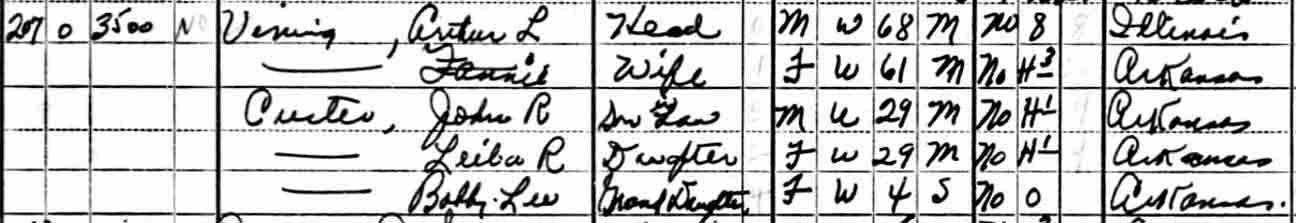 207 O 3500 No Vining, Arthur L Head M W 68 M No 8 Illinois
—— Fannie Wife F W 61 M No H3 Arkansas
Custer, John R Son Law M W 29 M No H1 Arkansas
—— R Daughter F W 29 M No H1 Arkansas
—— Bobby Lee Grand Daughter F W 4 S No 0 Arkansas.